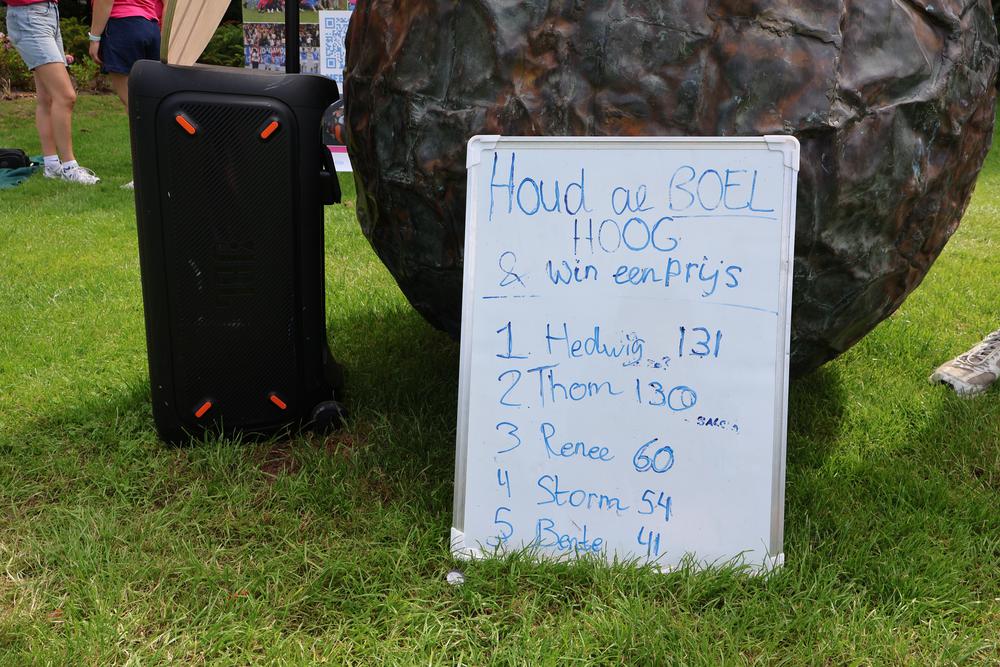 Houd de BOEL
HOOG
& win een prijs
1. Hedwig 131
2. Thom 130
3 Renee 60
4 Storm 54
5 Bente 41
JBL